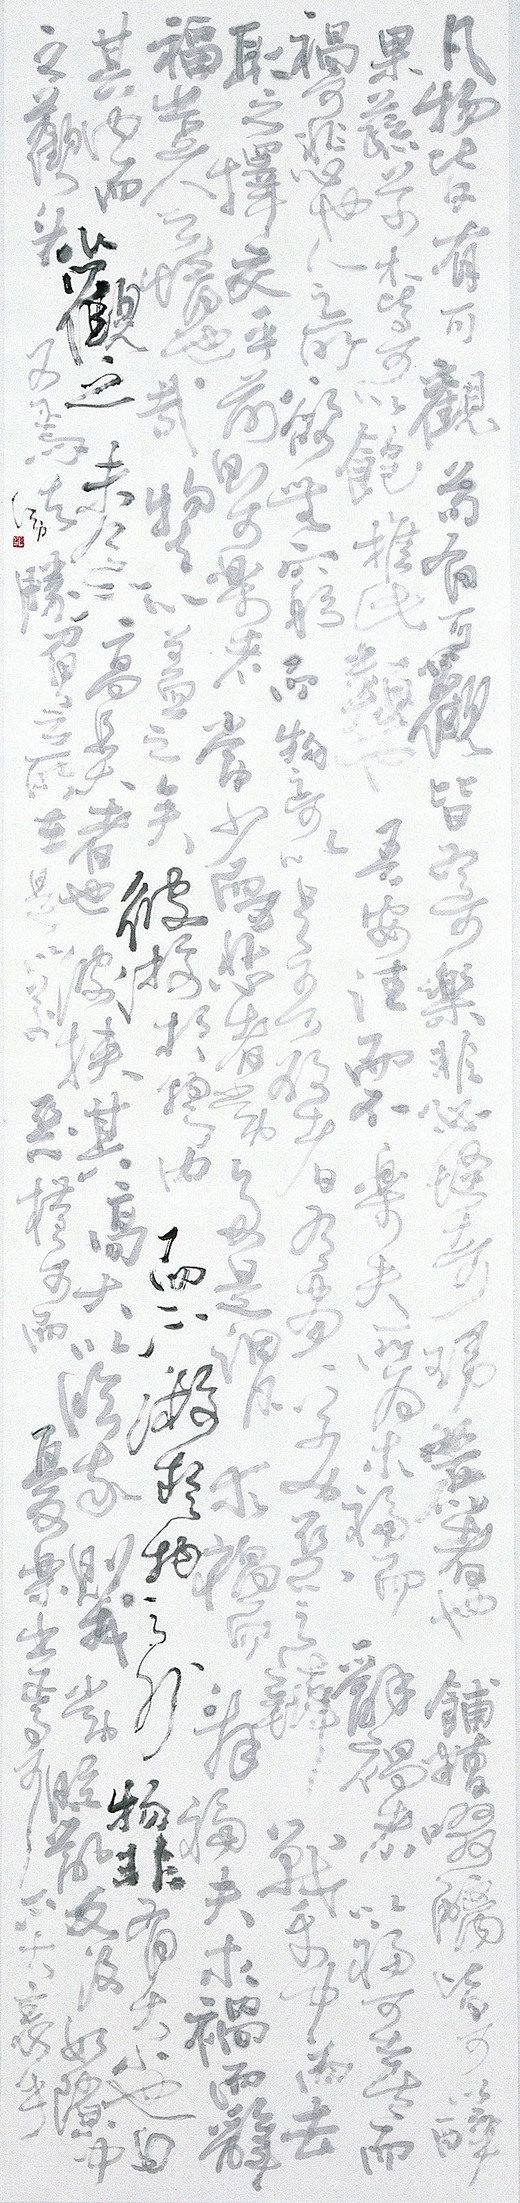 凡物皆有可觀苟有可觀皆有可樂非必怪奇瑋麗者也餔糟啜醨皆可以醉
果蔬草木皆可以飽推此類也吾安往而不樂夫所為求福而辭禍者以福可喜而
禍可悲也人之所欲無窮而物之可以足吾欲者有盡美惡之辨戰乎中而去
取之擇交乎前則可樂者常少而可悲者常多是謂求禍而辭福夫求禍而辭
福豈人之情也哉物有以蓋之矣彼遊於物之內而不遊於物之外物非有大小也自
其內而觀之未有不高且大者也彼挾其高大以臨我則我常眩亂反復如隙中
之觀鬥又焉知勝負之所在是以美惡橫生而憂樂出焉可不大哀乎